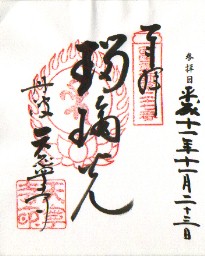 参拝日 平成十一年十一月二十三日
奉拝
瑠璃光
丹波
天寧寺